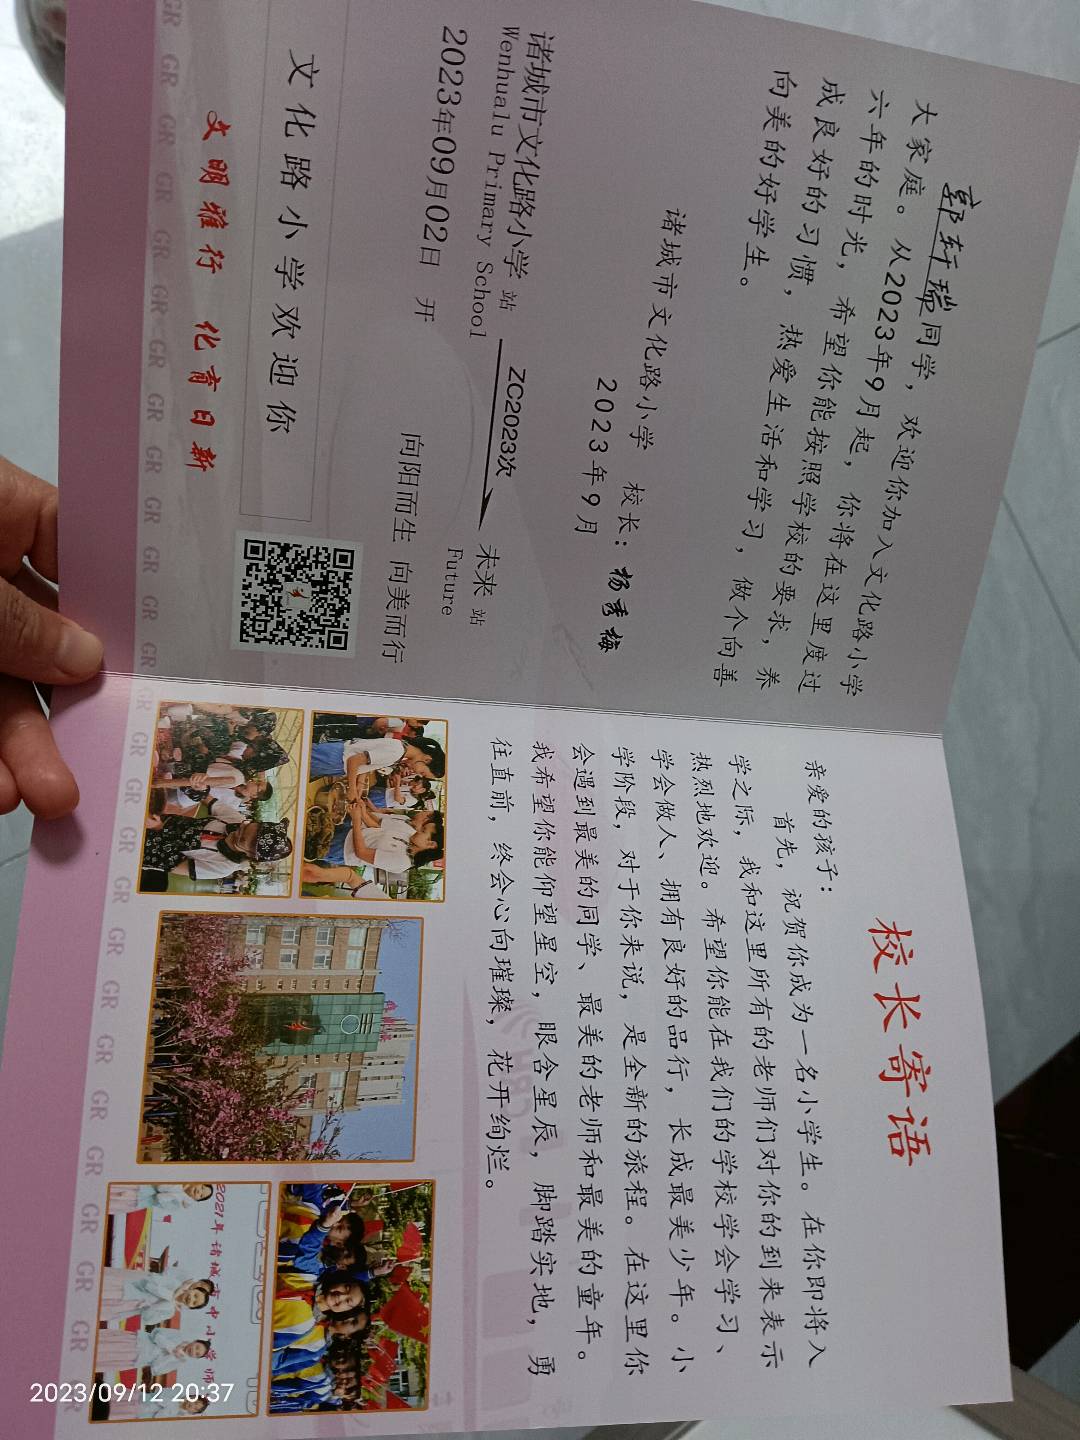 郭轩瑞同学，欢迎你加入文化路小学
大家庭。从2023年9月起，你将在这里度过
六年的时光，希望你能按照学校的要求，养
成良好的习惯，热爱生活和学习，做个向善
向美的好学生。
诸城市文化路小学 校长：杨秀梅
2023年9月
诸城市文化路小学 站
Wenhualu Primary School
ZC2023次
未来 站
Future
2023年09月02日 开
向阳而生 向美而行
文化路小学欢迎你
文明雅行 化育日新
GR GR GR GR GR GR GR GR GR GR GR GR
校长寄语
亲爱的孩子：
首先，祝贺你成为一名小学生。在你即将入
学之际，我和这里所有的老师们对你的到来表示
热烈地欢迎。希望你能在我们的学校学会学习、
学会做人、拥有良好的品行，长成最美少年。小
学阶段，对于你来说，是全新的旅程。在这里你
会遇到最美的同学、最美的老师和最美的童年。
我希望你能仰望星空，眼含星辰，脚踏实地，勇
往直前，终会心向璀璨，花开绚烂。
2021年诸城市中小学师
GR GR GR GR GR GR GR GR GR GR GR GR
2023/09/12 20:37